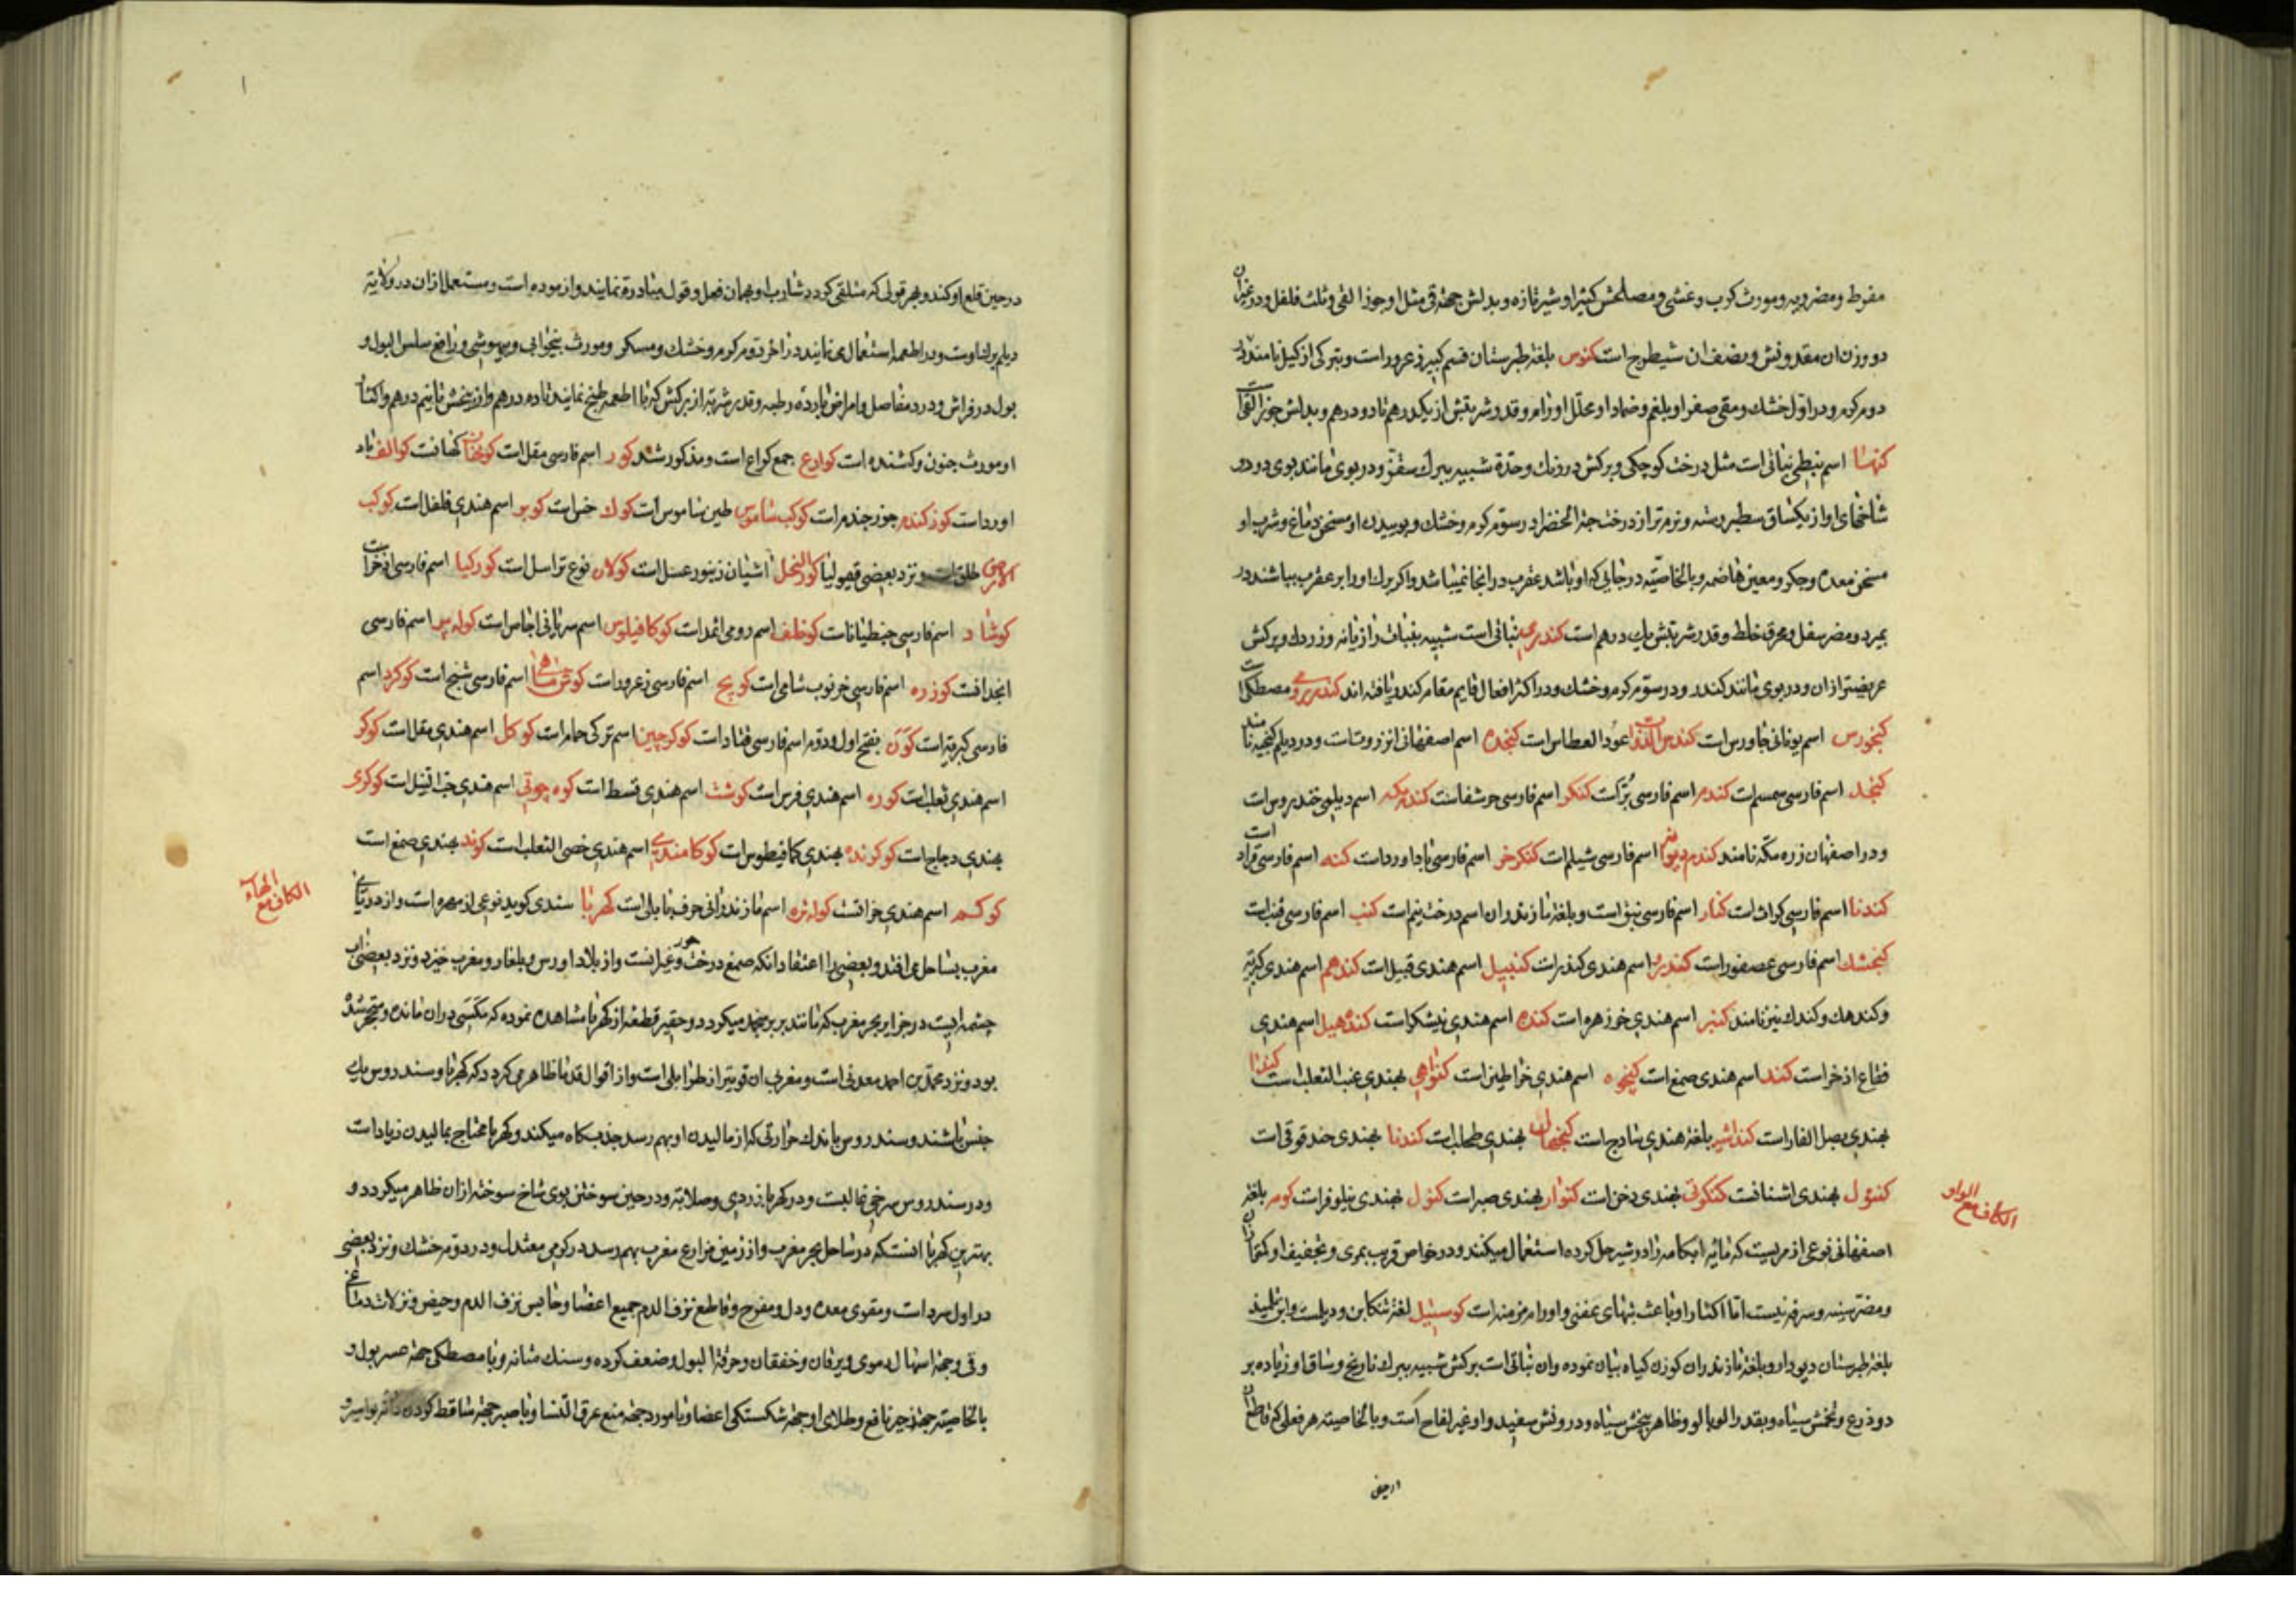 مفرط ومضر ریه ومورث کرب وغشی ومصلحش کتیرا وشیر تازه وبدلش جهة قی مثل او جوز القی وثلث فلفل ودر غیر ان
دو وزن ان مقدونش ونصف ان شیطرج است کنوس بلغة طبرستان قسم کبیر زعرور است وبترکی ازکیل نامند در
دوم کرم ودر اول خشک ومقی صفرا وبلغم وضماد او محلل اورام وقدر شربتش از یکدرهم تا دو درهم وبدلش جوز القی است
کنهانا اسم نبطی نباتی است مثل درخت کوچکی وبرکش در رنک وحدة شبیه ببرک سقز ودر بوی مانند بوی دود و
شاخهای او از یکساق سطبر رسته ونرم تر از درخت حبة الخضرا در سوم کرم وخشک وبوییدن او مسخن دماغ وشرب او
مسخن معده وجکر ومعین هاضمه وبالخاصیه در جایی که او باشد عقرب در انجا نمیباشد واکر برک او را بر عقرب بپاشند در
بمیرد ومضر سفل ومحرق خلط وقدر شربتش یک درهم است کندری نباتی است شبیه بنبات رازیانه وزردک وبرکش
عریضتر ازان ودر بوی مانند کندر ودر سوم کرم وخشک ودر اکثر افعال قایم مقام کندر یافته اند کندر رومی مصطکی است
کنجورس اسم یونانی جاورس است کندس عود العطاس است کنجده اسم اصفهانی انزروت است ودر دیلم کنجیه نامند
کنجد اسم فارسی سمسم است کندم اسم فارسی بر است کنکر اسم فارسی حرشف است کندم مکه اسم دیلمی خندروس است
ودر اصفهان زره مکه نامند کندم دیوانه اسم فارسی شیلم است کنکر خر اسم فارسی باداورد است کنه اسم فارسی قراد است
کندنا اسم فارسی کراث است کنار اسم فارسی نبق است وبلغة مازندران اسم درخت نیم است کنب اسم فارسی قنب است
کنجشک اسم فارسی عصفور است کندبر اسم هندی کندر است کنبیل اسم هندی قنبیل است کندهم اسم هندی کبریت
وکندهک وکندک نیز نامند کنیر اسم هندی خرزهره است کنده اسم هندی نیشکر است کندهیل اسم هندی
فقاع اذخر است کند اسم هندی صمغ است کنچوه اسم هندی خراطین است کنواهی بهندی عنب الثعلب است کندا
بهندی بصل الفار است کنداشیر بلغة هندی ساذج است کنجهال بهندی طحلب است کندنا بهندی حندقوقی است
کنوءل بهندی اشنان است کنکونی بهندی دخن است کنوار بهندی صبر است کنول بهندی نیلوفر است کومه بلغة
اصفهانی نوعی از مریست که مایه ابکامه را در شیر حل کرده استعمال میکنند ودر خواص قریب بمری وتجفیف او کمتر ازان
ومضر سینه وسرفه نیست اما اکثار او باعث تبهای عفنی واورام مزمنه است کوسئیل لغة تنکابن ودیلم است وابن تلمیذ
بلغة طبرستان دیو دارو وبلغة مازندران کوزن کیاه بیان نموده وان نباتی است برکش شبیه ببرک نارنج وساق او زیاده بر
دو ذرع وتخمش سیاه وبقدر الوبالو وظاهر بیخش سیاه ودرونش سفید واو غیر لفاح است وبالخاصیته هر فعلی که قاطع ان
در حین
الکاف مع الواو
در حین قلع او کند وهر قولی که متلقی کردد شارب او همان فعل وقول مبادرة نمایند وازموده است ومستعمل ازان در ولایة
دیلم برک اوست ودر اطعمه استعمال می نمایند در اخر دوم کرم وخشک ومسکر ومورث بیخوابی وبیهوشی ورافع سلس البول و
بول در فراش ودرد مفاصل وامراض بارده رطبه وقدر شربة از برکش که با اطعمه طبخ نمایند تا ده درهم واز بیخش تا نیم درهم واکثار
او مورث جنون وکشنده است کوارع جمع کراع است ومذکور شد کور اسم فارسی مقل است کونخان کهانت کوالف باد
اورد است کوز کندم جوز جندم است کوکب شاموس طین ساموس است کوک خس است کوبر اسم هندی فلفل است کوکب
الارض طلق است ونزد بعضی قیمولیا کور النحل اشیان زنبور عسل است کولان نوع تر اسل است کورکیا اسم فارسی اذخر است
کوشاد اسم فارسی جنطیانا است کوخلف اسم رومی اثمد است کوکافیلوس اسم سریانی اجاص است کوله پر اسم فارسی
انجدان است کوزره اسم فارسی خرنوب شامی است کویج اسم فارسی زعرور است کوش ماهی اسم فارسی شنج است کوکرد اسم
فارسی کبریت است کون بفتح اول ودوم اسم فارسی قتاد است کوکرچین اسم ترکی حمام است کوکل اسم هندی مقل است کوکر
اسم هندی ثعلب است کوره اسم هندی فرس است کوشت اسم هندی قسط است کوه چونی اسم هندی حب النیل است کوکری
بهندی دجاج است کوکرنده بهندی کمافیطوس است کوکامندی اسم هندی خصی الثعلب است کوند بهندی صمغ است
کوکسه اسم هندی خرانست کوله تره اسم مازندرانی حرف بابلی است کهربا سندی کوید نوعی از مهره است واز دریای
مغرب بساحل می افتد وبعضی را اعتقاد انکه صمغ درخت حور وغیر انست واز بلاد اورس وبلغار ومغرب خیزد ونزد بعضی اب
چشمه ایست در جزایر بحر مغرب که مانند بربر منجمد میکردد وحقیر قطعه از کهربا مشاهده نموده که مکسی دران مانده ومتحجر شده
بود ونزد محمد بن احمد معدنی است ومغربی ان قویتر از طرابلی است واز اقوال قدما ظاهر می کردد که کهربا وسندروس یک
جنس باشند وسندروس باندک حرارتی که از مالیدن او بهم رسد جذب کاه میکند وکهربا محتاج بمالیدن زیاد است
ودر سندروس سرخی غالبست ودر کهربا زردی وصلابة ودر حین سوختن بوی شاخ سوخته ازان ظاهر میکردد و
بهترین کهربا انست که در ساحل بحر مغرب واز زمین مزارع مغرب بهم رسد در کرمی معتدل ودر دوم خشک ونزد بعضی
در اول سرد است ومقوی معده ودل ومفرح وقاطع نزف الدم جمیع اعضا وحابس نزف الدم وحیض ونزلات دماغی
وقی وجهة اسهال دموی ویرقان وخفقان وحرقة البول وضعف کرده وسنک مثانه وبا مصطکی جهة عسر بول و
بالخاصیته جهة زحیر نافع وطلای او جهة شکستکی اعضا وبا مورد جهة منع عرق النسا وبا صبر جهة ساقط کردن دانه بواسیر و
الکاف مع الهاء